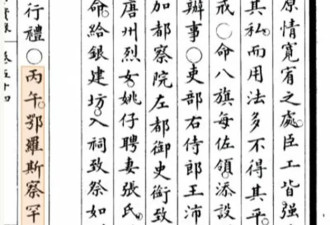 原情寬宥之處臣工皆强
其私而用法多不得其平
戒○命八旗每佐領添設
辦事○吏部右侍郎王沛
加都察院左都御史銜致
唐州烈女姚仔聘妻張氏
命給銀建坊入祠致祭如
行禮○丙午鄂羅斯察罕